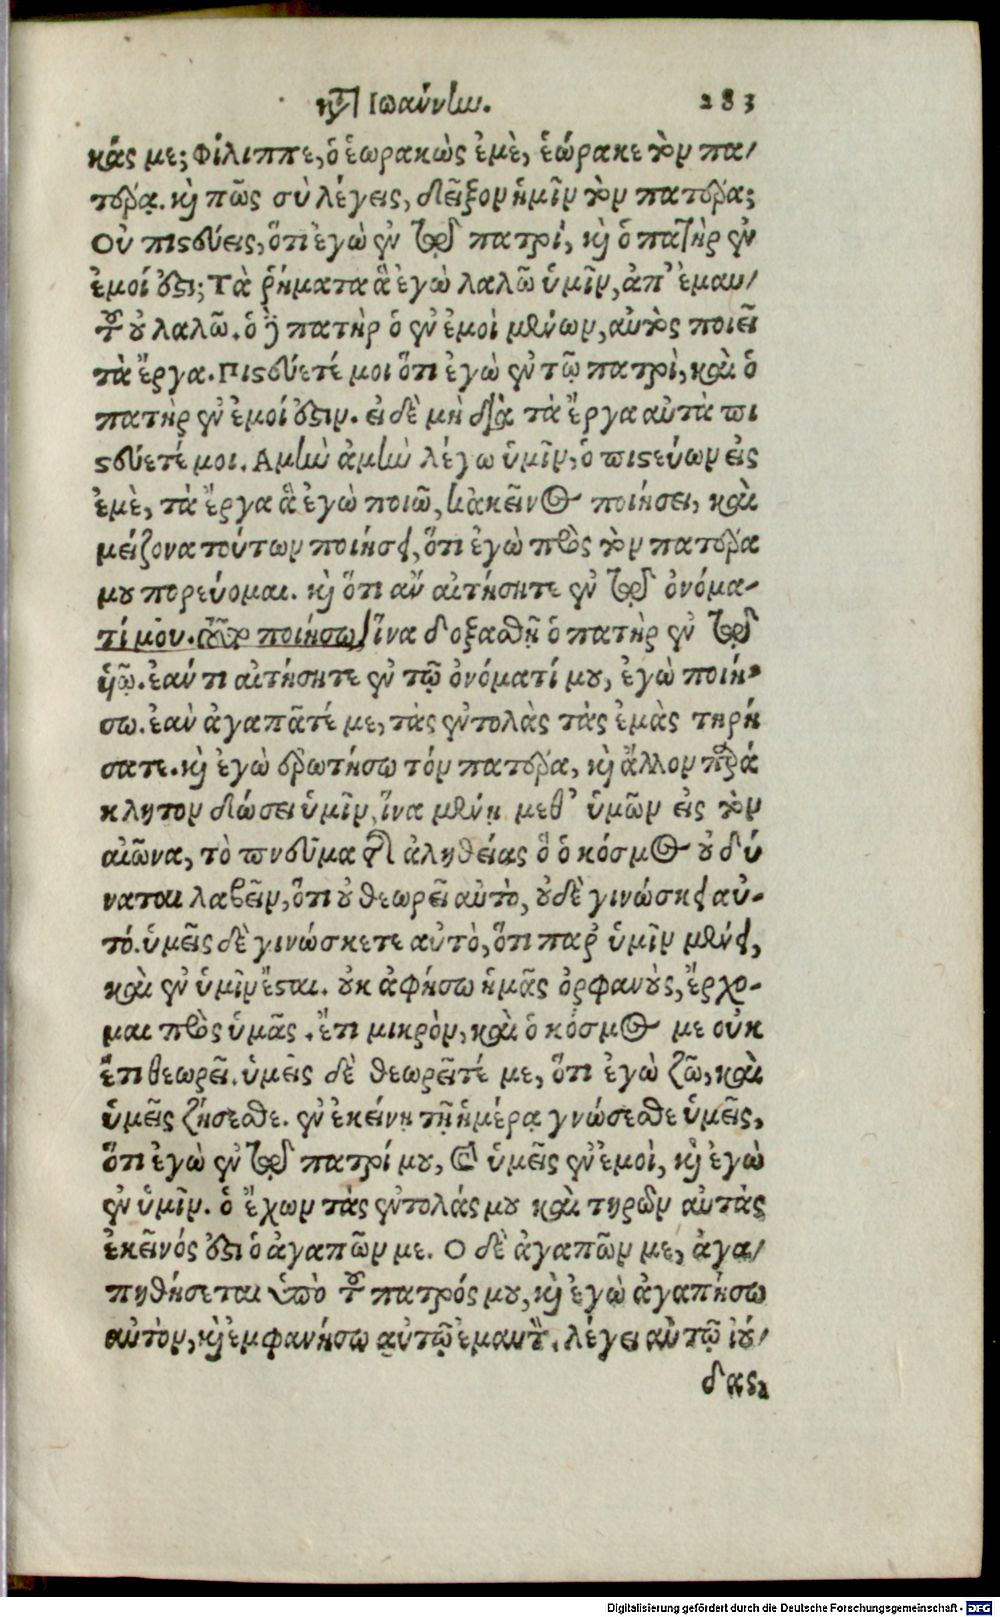 κτ̀ Ἰωάννίω. 283
κάς με; Φίλιππε, ὁ ἑωρακὼς ἐμὲ, ἑώρακε τὸν πα/
τέρα. κὶ πῶς σὺ λέγεις, δεῖξον ἡμῖν τὸν πατέρα;
Οὐ πιστεύεις, ὅτι ἐγὼ ἐν τῷ πατρί, κὶ ὁ πατὴρ ἐν
ἐμοί ἐστι; Τὰ ῥήματα ἃ ἐγὼ λαλῶ ὑμῖν, ἀπ' ἐμαυ/
τοῦ οὐ λαλῶ. ὁ δὲ πατὴρ ὁ ἐν ἐμοὶ μένων, αὐτὸς ποιεῖ
τὰ ἔργα. Πιστεύετέ μοι ὅτι ἐγὼ ἐν τῷ πατρὶ, καὶ ὁ
πατὴρ ἐν ἐμοί ἐστιν. εἰ δὲ μὴ διὰ τὰ ἔργα αὐτὰ πι
στεύετέ μοι. Αμὴν ἀμὴν λέγω ὑμῖν, ὁ πιστεύων εἰς
ἐμὲ, τὰ ἔργα ἃ ἐγὼ ποιῶ, κἀκεῖνος ποιήσει, καὶ
μείζονα τούτων ποιήσει, ὅτι ἐγὼ πρὸς τὸν πατέρα
μου πορεύομαι. κὶ ὅτι ἂν αἰτήσητε ἐν τῷ ὀνόμα-
τί μου. τοῦτο ποιήσω/ ἵνα δοξασθῇ ὁ πατὴρ ἐν τῷ
ὑῷ. ἐάν τι αἰτήσητε ἐν τῷ ὀνόματί μου, ἐγὼ ποιή-
σω. ἐὰν ἀγαπᾶτέ με, τὰς ἐντολὰς τὰς ἐμὰς τηρή
σατε. κὶ ἐγὼ ἐρωτήσω τόν πατέρα, κὶ ἄλλον παρά
κλητον δώσει ὑμῖν, ἵνα μένῃ μεθ' ὑμῶν εἰς τὸν
αἰῶνα, τὸ πνεῦμα τῆς ἀληθείας ὃ ὁ κόσμος οὐ δύ
ναται λαβεῖν, ὅτι οὐ θεωρεῖ αὐτὸ, οὐδὲ γινώσκει αὐ-
τό. ὑμεῖς δὲ γινώσκετε αὐτὸ, ὅτι παρ' ὑμῖν μένει,
καὶ ἐν ὑμῖν ἔσται. οὐκ ἀφήσω ἡμᾶς ὀρφανοὺς, ἔρχο-
μαι πρὸς ὑμᾶς. ἔτι μικρὸν, καὶ ὁ κόσμος με οὐκ
ἔτι θεωρεῖ. ὑμεῖς δὲ θεωρεῖτέ με, ὅτι ἐγὼ ζῶ, καὶ
ὑμεῖς ζήσεσθε. ἐν ἐκείνῃ τῇ ἡμέρᾳ γνώσεσθε ὑμεῖς,
ὅτι ἐγὼ ἐν τῷ πατρί μου, καὶ ὑμεῖς ἐν ἐμοὶ, κὶ ἐγὼ
ἐν ὑμῖν. ὁ ἔχων τὰς ἐντολάς μου καὶ τηρῶν αὐτὰς
ἐκεῖνός ἐστι ὁ ἀγαπῶν με. Ο δὲ ἀγαπῶν με, ἀγα/
πηθήσεται ὑπὸ τοῦ πατρός μου, κὶ ἐγὼ ἀγαπήσω
αὐτὸν, κὶ ἐμφανήσω αὐτῷ ἐμαυτόν. λέγει αὐτῷ ἰού/
δας,
Digitalisierung gefördert durch die Deutsche Forschungsgemeinschaft - DFG